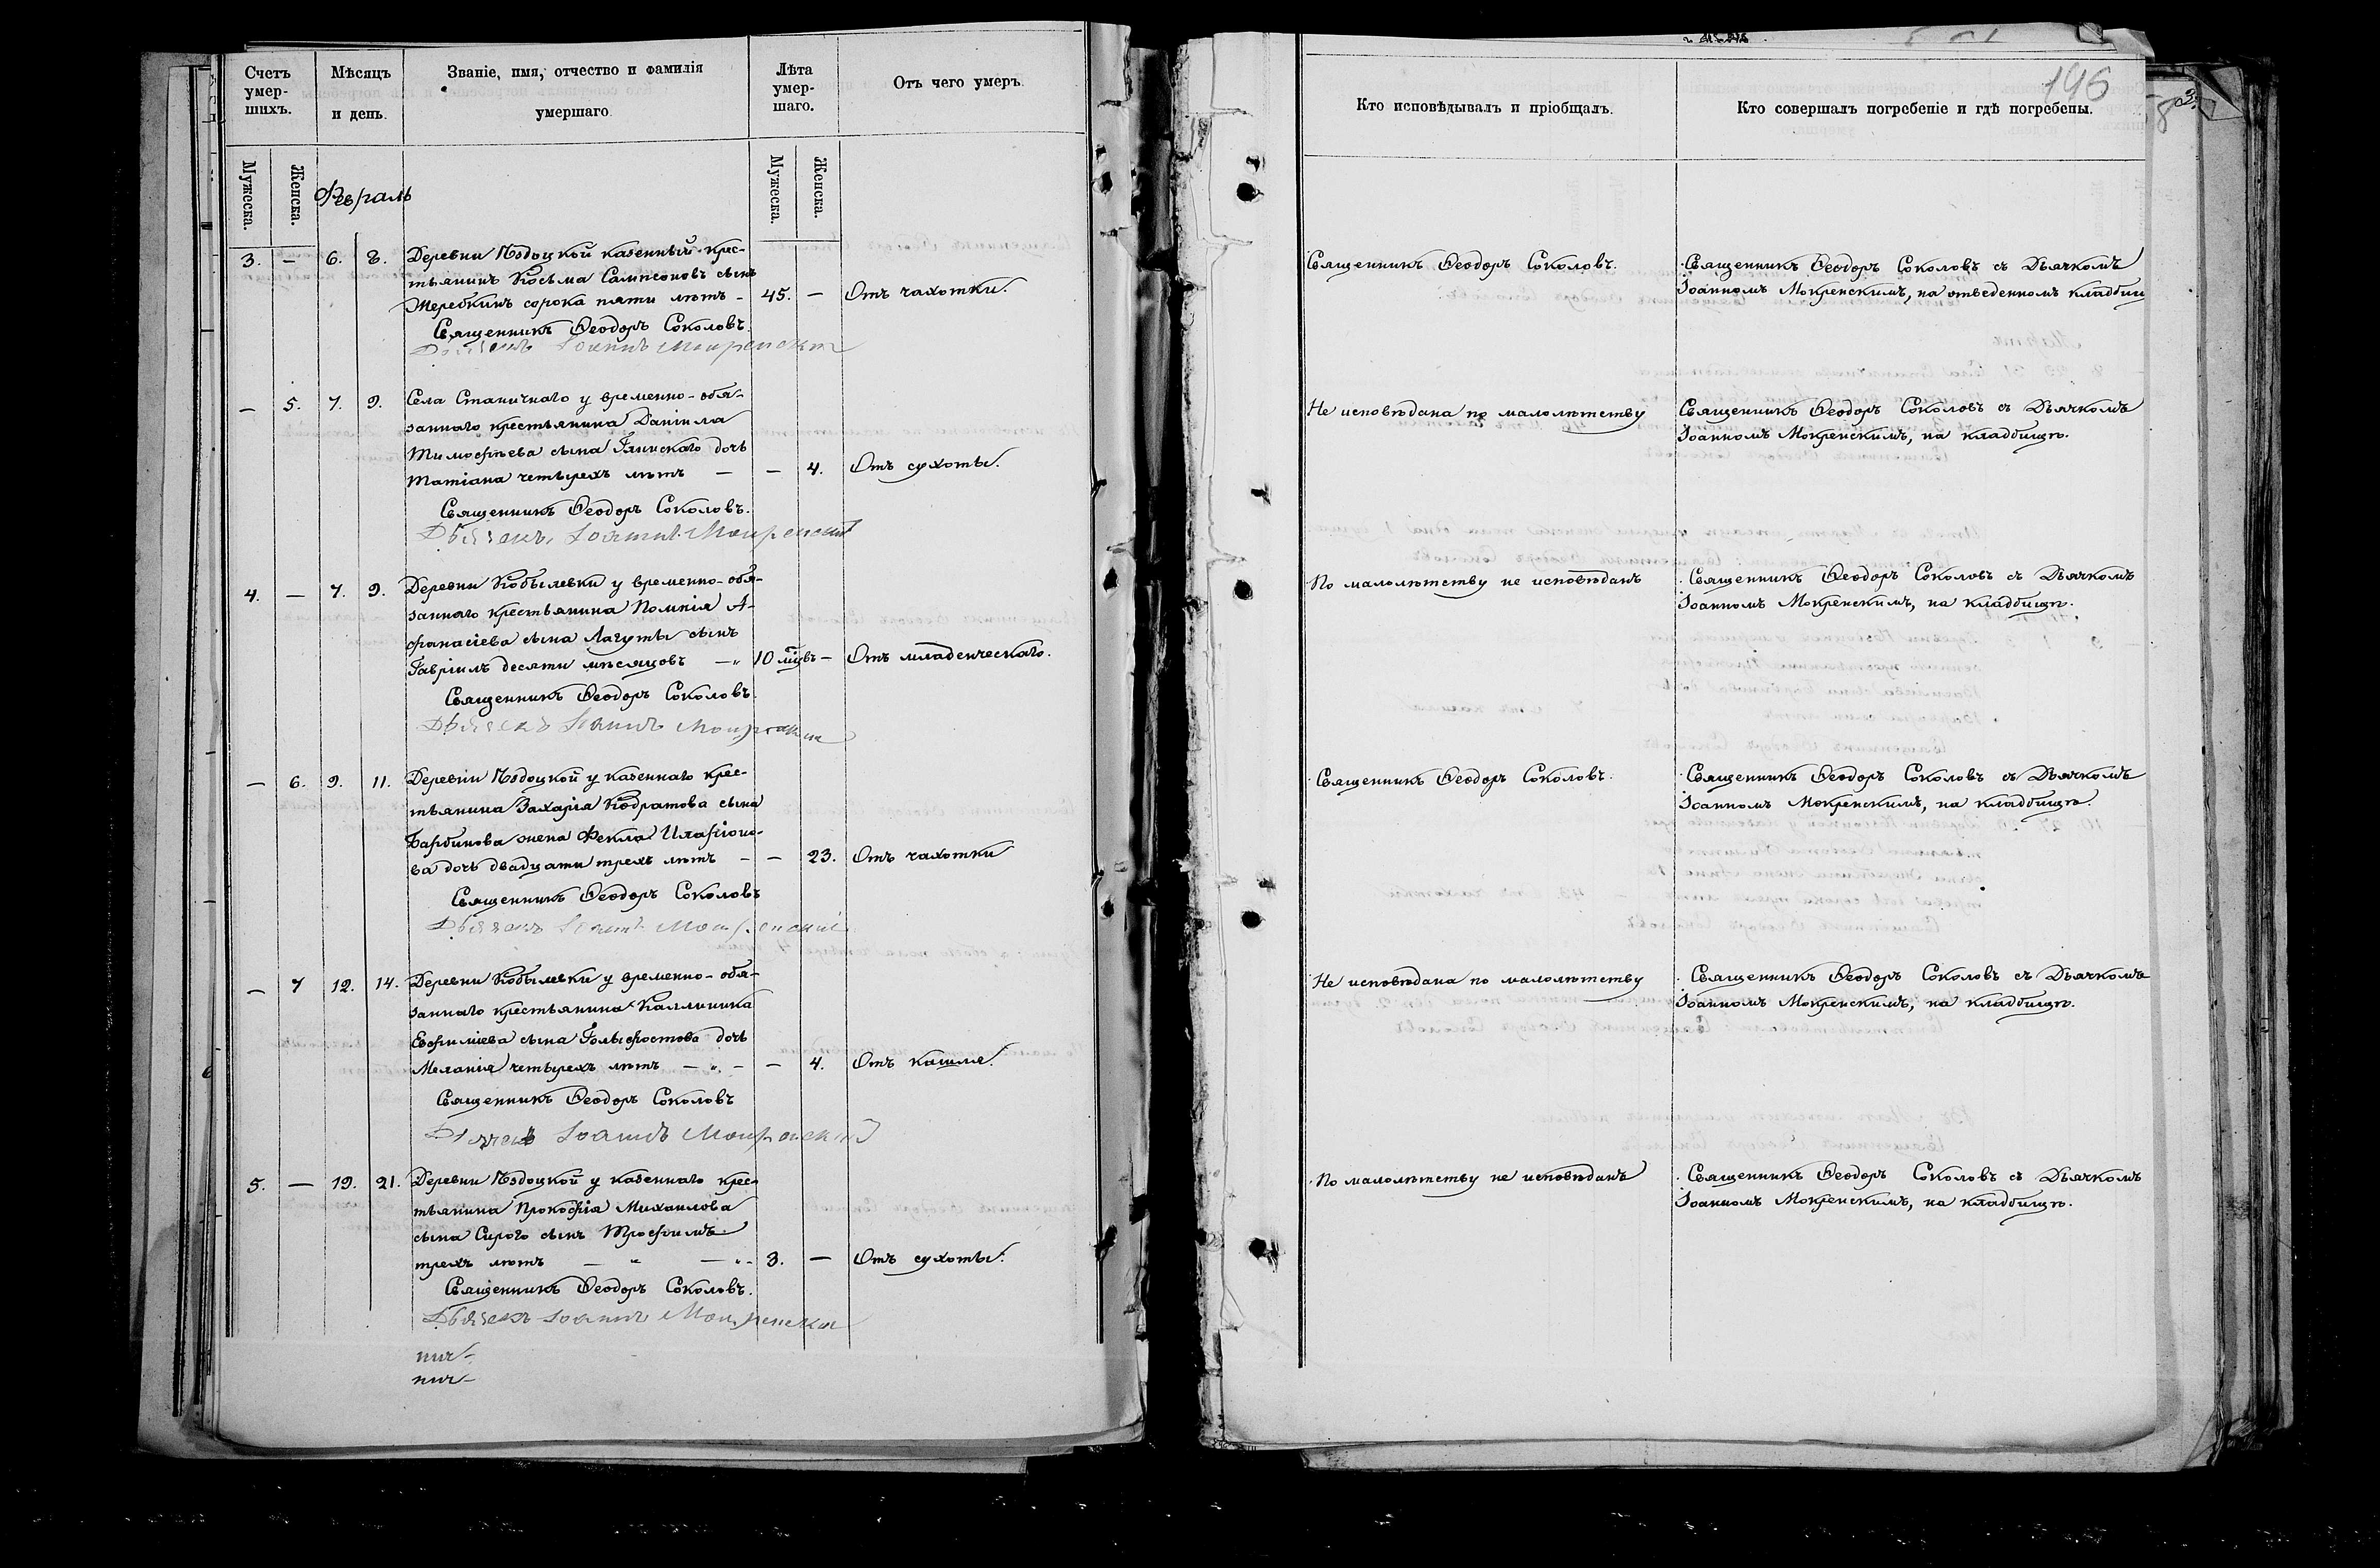 Счетъ умер-шихъ.
Мѣсяцъ и день.
Званіе, имя, отчество и фамилія умершаго.
Лѣта умер-шаго.
Отъ чего умеръ.
Мужеска.
Женска.
Мужеска.
Женска.
Февраль
3. — 6. 8. Деревни казенный крес-
тьянинъ Косьма Сампсоновъ сынъ
Жеребкинъ сорока пяти лѣтъ - 45. — Отъ чахотки.
Священникъ Ѳеодоръ Соколовъ.
Дьячекъ Іоаннъ Мокренскій
— 5. 7. 9. Села Станичнаго у временно-обя-
заннаго крестьянина Даніила
Тимоѳѣева сына Глинскаго дочь
Татіана четырехъ лѣтъ — — 4. Отъ сухоты.
Священникъ Ѳеодоръ Соколовъ.
Дьячекъ Іоаннъ Мокренскій
4. — 7. 9. Деревни Кобылевки у временно-обя-
заннаго крестьянина А-
фанасіева сына Лагуты сынъ
Гавріилъ десяти мѣсяцовъ — 10 мцвъ — Отъ младенческаго.
Священникъ Ѳеодоръ Соколовъ.
Дьячекъ Іоаннъ Мокренскій
— 6. 9. 11. Деревни у казеннаго крес-
тьянина Захарія Кодратова сына
Барбинова жена Фекла Иларіоно-
ва дочь двадцати трехъ лѣтъ — — 23. Отъ чахотки
Священникъ Ѳеодоръ Соколовъ
Дьячекъ Іоаннъ Мокренскій
— 7 12. 14. Деревни Кобылевки у временно-обя-
заннаго крестьянина Каллиника
Евфиміева сына дочь
Меланія четырехъ лѣтъ — „ — — 4. Отъ кашля.
Священникъ Ѳеодоръ Соколовъ
Дьячекъ Іоаннъ Мокренскій
5. — 19. 21. Деревни у казеннаго крес-
тьянина Прокофія Михаилова
сына Сирого сынъ Трофимъ
трехъ лѣтъ — „ — „ - 3. — Отъ сухоты.
Священникъ Ѳеодоръ Соколовъ.
Дьячекъ Іоаннъ Мокренскій
196
Кто исповѣдывалъ и пріобщалъ.
Кто совершалъ погребеніе и гдѣ погребены.
Священникъ Ѳеодоръ Соколовъ.
Священникъ Ѳеодоръ Соколовъ съ Дьячкомъ
Іоанномъ Мокренскимъ, на отведенномъ кладбищ
Не исповѣдана по малолѣтству
Священникъ Ѳеодоръ Соколовъ съ Дьячкомъ
Іоанномъ Мокренскимъ, на кладбищѣ.
По малолѣтству не исповѣданъ
Священникъ Ѳеодоръ Соколовъ съ Дьячкомъ
Іоанномъ Мокренскимъ, на кладбищѣ.
Священникъ Ѳеодоръ Соколовъ.
Священникъ Ѳеодоръ Соколовъ съ Дьячкомъ
Іоанномъ Мокренскимъ, на кладбищѣ.
Не исповѣдана по малолѣтству
Священникъ Ѳеодоръ Соколовъ съ Дьячкомъ
Іоанномъ Мокренскимъ, на кладбищѣ.
По малолѣтству не исповѣданъ
Священникъ Ѳеодоръ Соколовъ съ Дьячкомъ
Іоанномъ Мокренскимъ, на кладбищѣ.